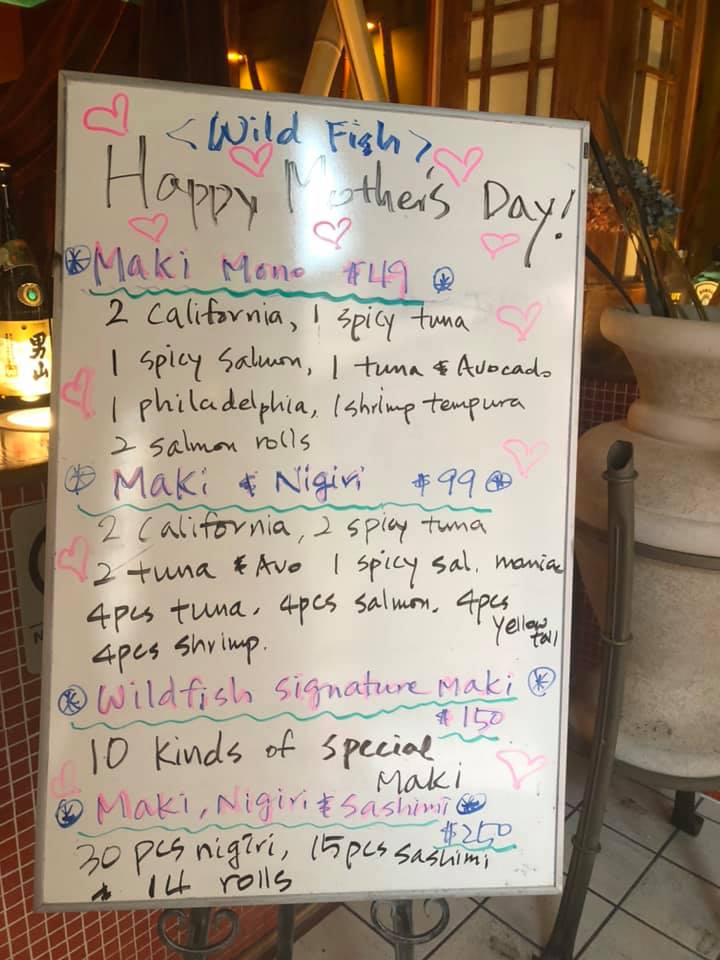 <Wild Fish>
Happy Mother's Day!
Maki Mono $49
2 California, 1 spicy tuna
1 spicy Salmon, 1 tuna & Avocado
1 philadelphia, 1 shrimp tempura
2 salmon rolls
Maki & Nigiri $99
2 California, 2 spicy tuna
2 tuna & Avo 1 spicy sal. maniac
4pcs tuna. 4pcs salmon. 4pcs
yellow
tail
4pcs shrimp.
Wildfish signature Maki
$150
10 kinds of special
Maki
Maki, Nigiri & Sashimi
$250
30 pcs nigiri, 15pcs sashimi
& 14 rolls
男山